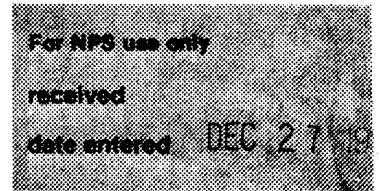 For NPS use only
received
date entered DEC 27 19